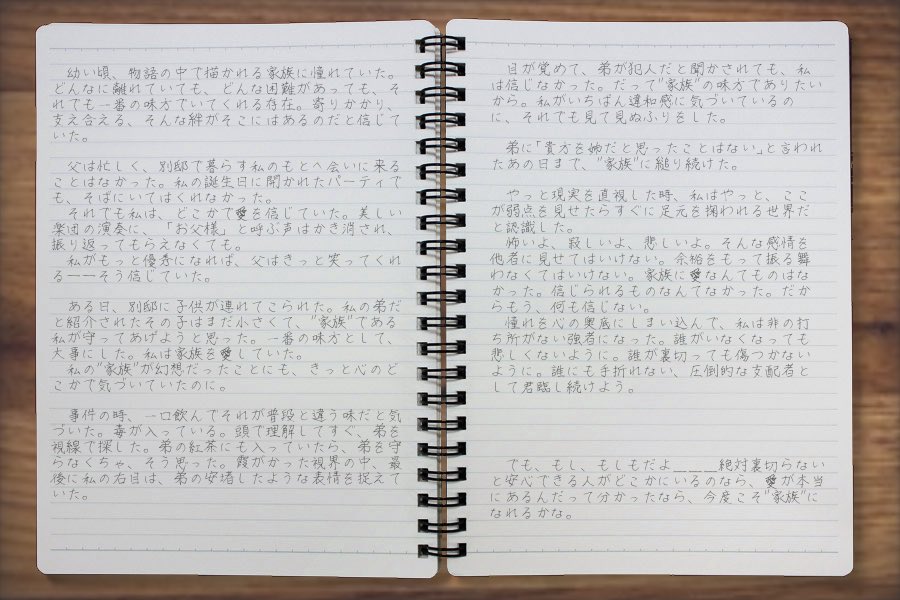 幼い頃、物語の中で描かれる家族に憧れていた。
どんなに離れていても、どんな困難があっても、そ
れでも一番の味方でいてくれる存在。寄りかかり、
支え合える、そんな絆がそこにはあるのだと信じて
いた。
父は忙しく、別邸で暮らす私のもとへ会いに来る
ことはなかった。私の誕生日に開かれたパーティで
も、そばにいてはくれなかった。
それでも私は、どこかで愛を信じていた。美しい
楽団の演奏に、「お父様」と呼ぶ声はかき消され、
振り返ってもらえなくても。
私がもっと優秀になれば、父はきっと笑ってくれ
る――そう信じていた。
ある日、別邸に子供が連れてこられた。私の弟だ
と紹介されたその子はまだ小さくて、"家族"である
私が守ってあげようと思った。一番の味方として、
大事にした。私は家族を愛していた。
私の"家族"が幻想だったことにも、きっと心のど
こかで気づいていたのに。
事件の時、一口飲んでそれが普段と違う味だと気
づいた。毒が入っている。頭で理解してすぐ、弟を
視線で探した。弟の紅茶にも入っていたら、弟を守
らなくちゃ、そう思った。霞がかった視界の中、最
後に私の右目は、弟の安堵したような表情を捉えて
いた。
目が覚めて、弟が犯人だと聞かされても、私
は信じなかった。だって"家族"の味方でありたい
から。私がいちばん違和感に気づいているの
に、それでも見て見ぬふりをした。
弟に「貴方を姉だと思ったことはない」と言われ
たあの日まで、"家族"に縋り続けた。
やっと現実を直視した時、私はやっと、ここ
が弱点を見せたらすぐに足元を掬われる世界だ
と認識した。
怖いよ、寂しいよ、悲しいよ。そんな感情を
他者に見せてはいけない。余裕をもって振る舞
わなくてはいけない。家族に愛なんてものはな
かった。信じられるものなんてなかった。だか
らもう、何も信じない。
憧れを心の奥底にしまい込んで、私は非の打
ち所がない強者になった。誰がいなくなっても
悲しくないように。誰が裏切っても傷つかない
ように。誰にも手折れない、圧倒的な支配者と
して君臨し続けよう。
でも、もし、もしもだよ＿＿＿絶対裏切らない
と安心できる人がどこかにいるのなら、愛が本当
にあるんだって分かったなら、今度こそ"家族"に
なれるかな。